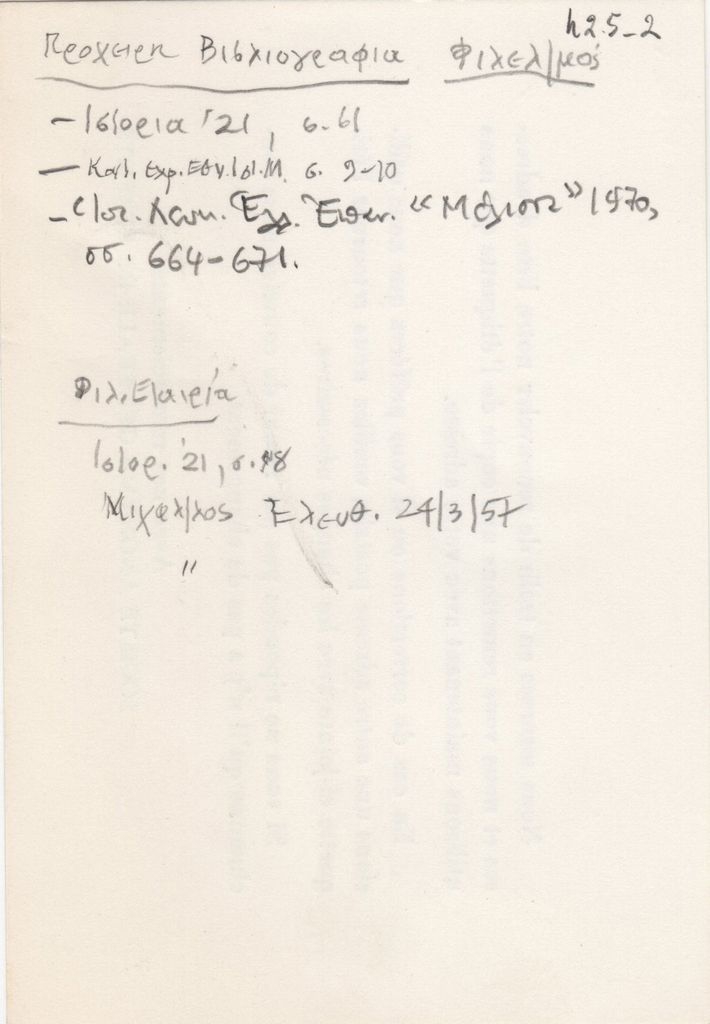 h2.5-2
Προχειρη Βιβλιογραφια Φιλελ/μός
- Ιστορια '21, σ. 61
- Κατ. Εχρ. Εθν. Ιστ. Μ. σ. 9-10
- Ελλ. Έθν. «Μέλισσα» 1970,
σσ. 664-671.
Φιλ. Εταιρία
Ιστορ. '21, σ. 48
Μιχαλ/λος Ελευθ. 24/3/57
"